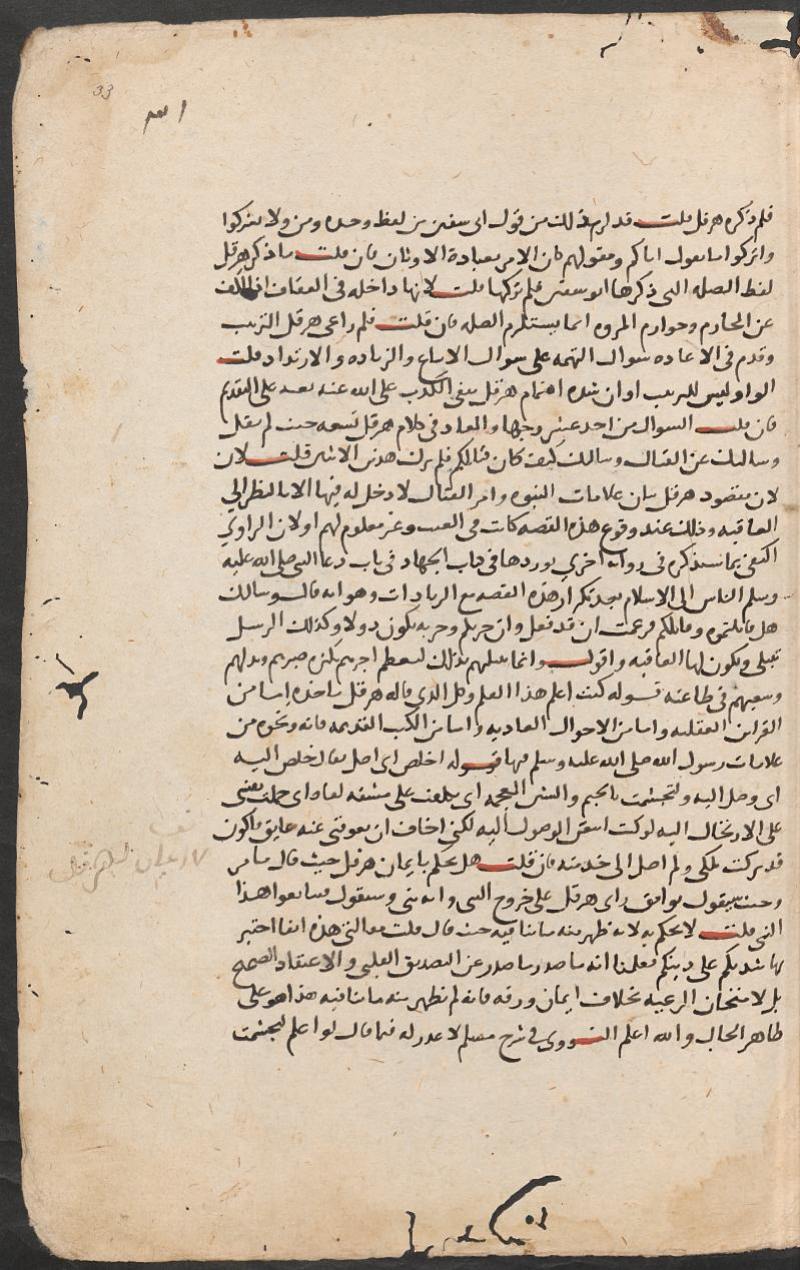 33
فلم ذكره هرقل قلت قد لزم ذلك من قول ابى سفين من لفظ وحده ومن ولا تشركوا
واتركوا ما يقول اباكم ومقولهم كان الامر بعبادة الاوثان فان قلت ما ذكر هرقل
لفظ الصله التى ذكرها ابو سفين فلم تركها قلت لانها داخله فى العفاف اذ الكف
عن المحارم وخوارم المروه انما يستلزم الصله فان قلت فلم راعى هرقل الترتيب
وقدم فى الاعاده سوال التهمه على سوال الاتباع والزياده والارتداد قلت
الواو ليس للترتيب او ان شده اهتمام هرقل بنفى الكذب على الله عنه بعثه على التقديم
فان قلت السوال من احد عشر وجها والمعاد فى كلام هرقل تسعه حيث لم يقل
وسالتك عن القتال وسالتك كيف كان قتالكم فلم ترك هذين الاثنين قلت لان
لان مقصود هرقل بيان علامات النبوه وامر القتال لا دخل له فيها الا بالنظر الى
العاقبه وذلك عند وقوع هذه القصه كانت فى الغيب وغير معلوم لهم او لان الراوي
اكتفى بما سيذكره فى روايه اخري يوردها فى كتاب الجهاد فى باب دعا النبى صلى الله عليه
وسلم الناس الى الاسلام بعد تكرار هذه القصه مع الزيادات وهو انه قال وسالتك
هل قاتلتموه وقاتلكم فزعمت ان قد فعل وان حربكم وحربه يكون دولا وكذلك الرسل
تبتلى ويكون لها العاقبه واقول وانما يبتليهم بذلك ليعظم اجرهم بكثره صبرهم وبذلهم
وسعيهم فى طاعته قوله كنت اعلم هذا العلم وكل الذي قاله هرقل ماخذه اما من
القراين العقليه واما من الاحوال العاديه واما من الكتب القديمه فانه ونحوه من
علامات رسول الله صلى الله عليه وسلم فيها قوله اخلص اى اصل يقال خلص اليه
اى وصل اليه ولتجشمت بالجيم والشين المعجمه اى تكلفت على مشقه لقاه اى حملت نفسى
على الارتحال اليه لو كنت اتيقن الوصول اليه لكنى اخاف ان يعوقنى عنه عايق فاكون
قد تركت ملكى ولم اصل الى خدمته فان قلت هل يحكم بايمان هرقل حيث قال ما مر
وحيث سيقول يوافق راى هرقل على خروج النبى وانه نبى وسيقول فبايعوا هذا
النبى قلت لا يحكم به لانه ظهر منه ما ينافيه حيث قال قلت مقالتى هذه انفا اختبر
بها شدتكم على دينكم فعلمنا انه ما صدر ما صدر عن التصديق القلبى والاعتقاد الصحيح
بل لامتحان الرعيه بخلاف ايمان ورقه فانه لم يظهر منه ما ينافيه هذا هو على
ظاهر الحال والله اعلم النووى فى شرح مسلم لا عذر له فيما قال لو اعلم لتجشمت